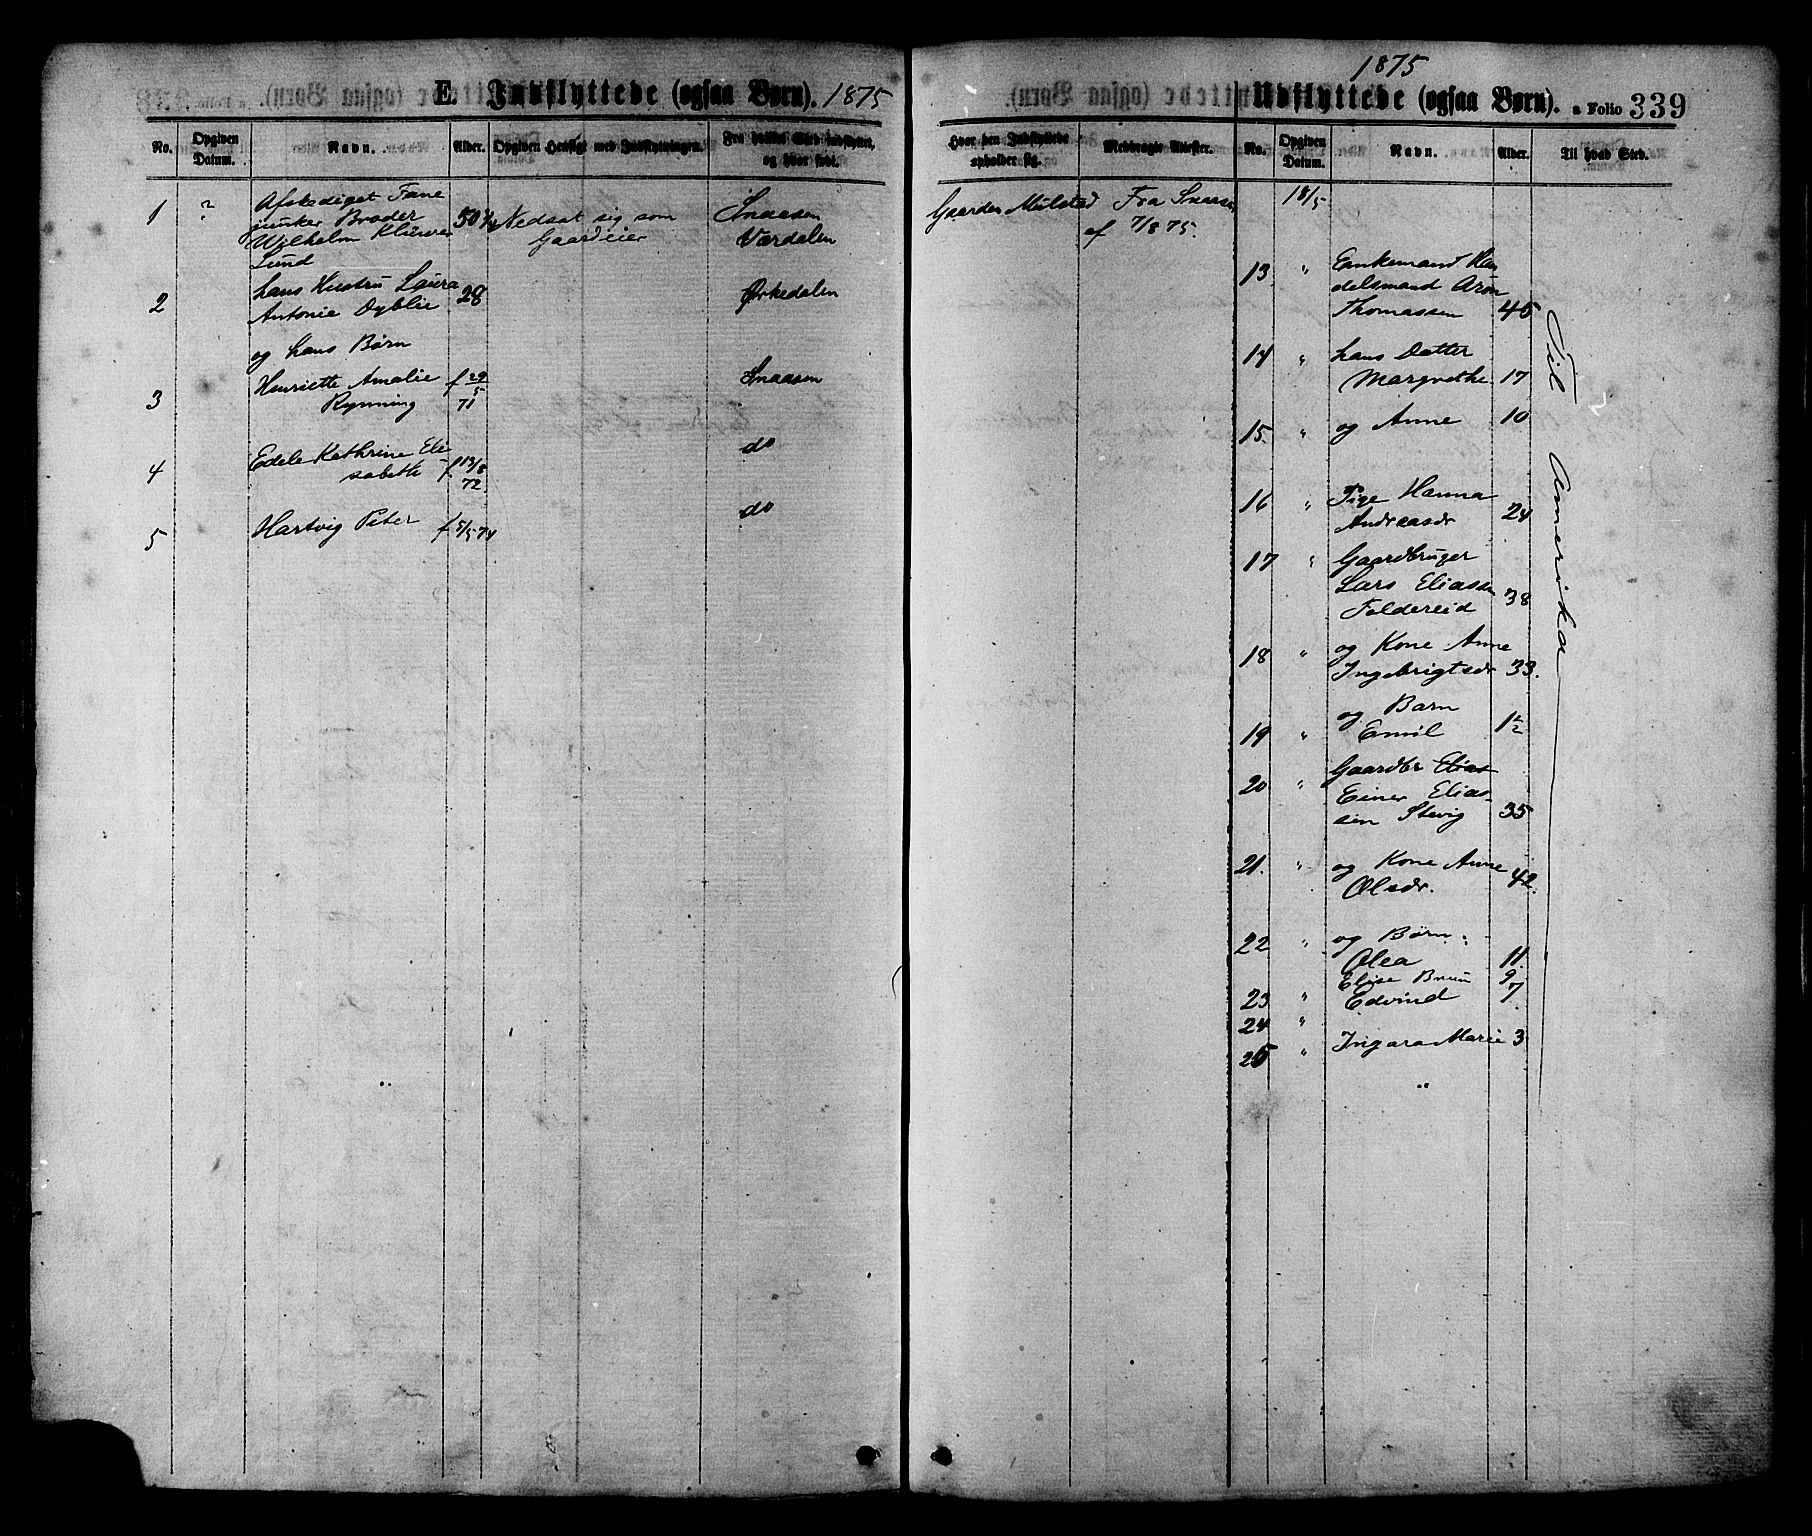 E. Indflyttede (ogsaa Børn). 1875
No.
Opgiven Datum.
Navn.
Alder.
Opgiven Hensigt med Indflytningen.
Fra hvilket Sted indflyttet, og hvor født.
1 ? Afskediget Fane
junker Broder
Wilhelm Klüwer
Lund
50 3/4 Nedsat sig som
Gaardeier
Snaasen
Værdalen
2 hans Hustru Laura
Antonie Dyblie 28 Ørkedalen
og hans Børn
3 Henriette Amalie
Rynning f 29/5 71 Snaasen
4 Edele Kathrine Eli
sabeth f 13/8 72 do
5 Hartvig Peter f 5/5 74 do
1875
Udflyttede (ogsaa Børn). a Folio 339
Hvor den Indflyttede opholder sig.
Medbragte Attester.
No.
Opgiven Datum.
Navn.
Alder.
Til hvad Sted.
Gaarden Mulstad Fra Snaasen
af 7/8 75.
18/5
13 " Enkemand Han
delsmand Aron
Thomassen 45
14 " hans Datter
Margrethe 17
15. " og Anne 10
16 " Pige Hanna
Andreasdr 24
17 " Gaardbruger
Lars Eliassen
Foldereid 38
18 " og Kone Anne
Ingebrigtsdr 33.
19 " og Barn
Emil 1 1/2
20 " Gaardbr Elias
Einer Elias-
sen Stevig 35
21. " og Kone Anne
Olsdr. 42.
22 " og Børn:
Olea 11.
Elise Bruun 9
23 " Edvind 7.
24 "
25 " Ingara Marie 3
"
Til Amerika